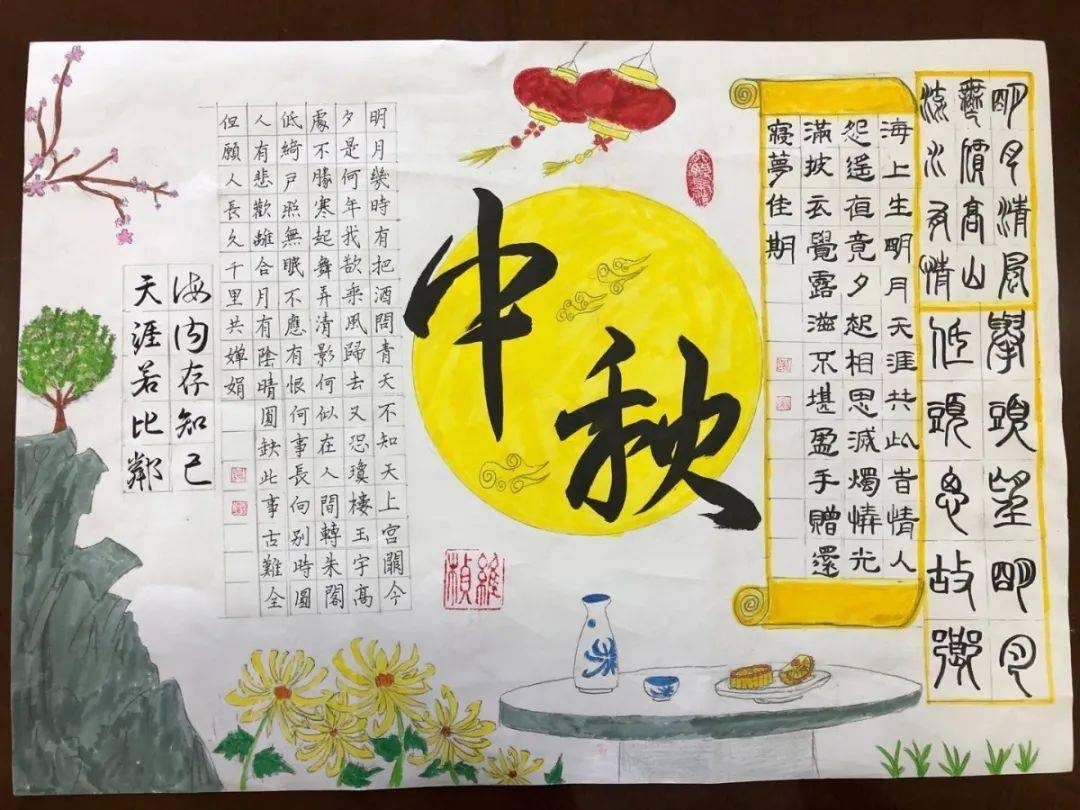 明月清風
無價高山
流水有情
舉頭望明月
低頭思故鄉
海上生明月天涯共此時情人
怨遙夜竟夕起相思滅燭憐光
滿披衣覺露滋不堪盈手贈還
寢夢佳期
中秋
維
楨
明月幾時有把酒問青天不知天上宮闕今
夕是何年我欲乘風歸去又恐瓊樓玉宇高
處不勝寒起舞弄清影何似在人間轉朱閣
低綺戶照無眠不應有恨何事長向別時圓
人有悲歡離合月有陰晴圓缺此事古難全
但願人長久千里共嬋娟
海內存知己
天涯若比鄰